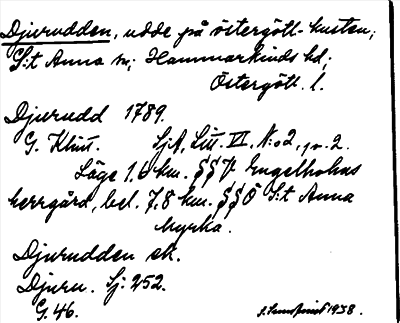 Djurudden, udde på östergött-kusten;
S:t Anna sn; Hammarkinds hd;
Östergötl. l.
Djurudd 1789.
G. Klint. SjA, Litt. VI. N:o 2, p. 2.
Läge 1.6 km. SSV Engelholms
herrgård, bel. 7,8 km. SSÖ S:t Anna
kyrka.
Djurudden ek.
Djuru. Sj: 252.
G. 46. 1938.